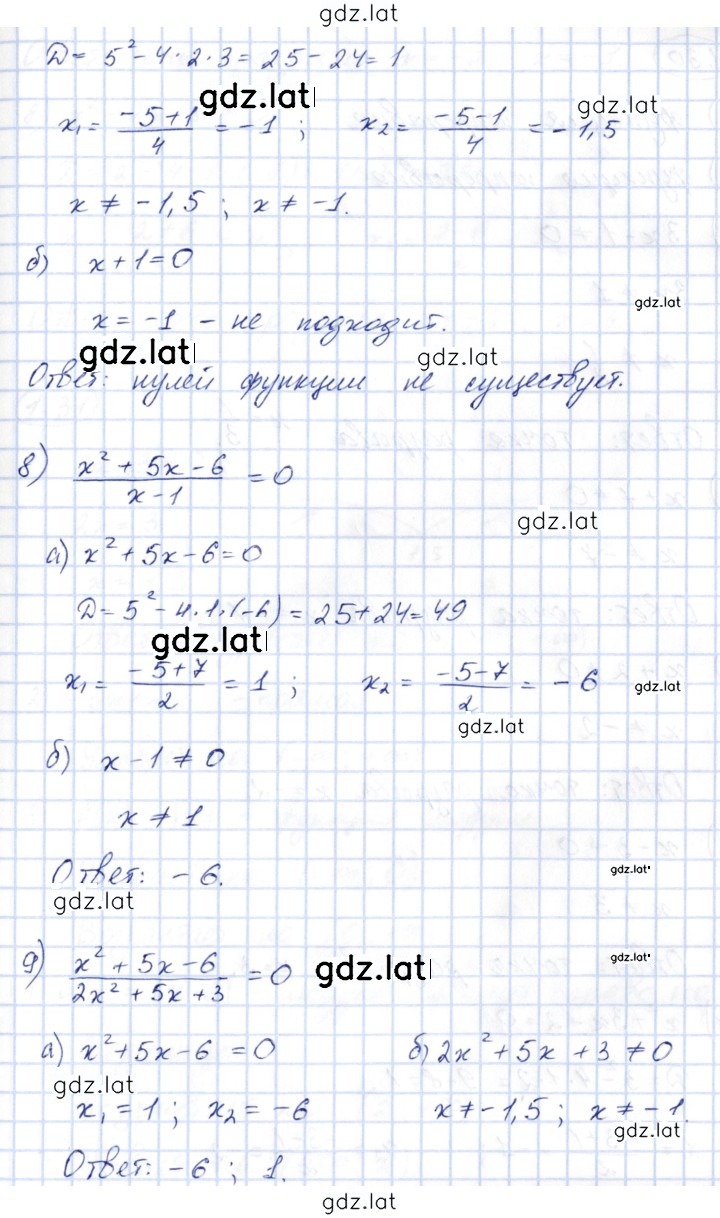 gdz.lat
D = 5² - 4·2·3 = 25 - 24 = 1
gdz.lat
gdz.lat
x₁ = (-5+1)/4 = -1 ; x₂ = (-5-1)/4 = -1,5
x ≠ -1,5 ; x ≠ -1.
б) x + 1 = 0
gdz.lat
x = -1 - не подходит.
gdz.lat
gdz.lat
Ответ: нулей функции не существует.
8) (x² + 5x - 6)/(x - 1) = 0
gdz.lat
а) x² + 5x - 6 = 0
D = 5² - 4·1·(-6) = 25 + 24 = 49
gdz.lat
x₁ = (-5+7)/2 = 1 ; x₂ = (-5-7)/2 = -6
gdz.lat
gdz.lat
б) x - 1 ≠ 0
x ≠ 1
Ответ: -6.
gdz.lat
gdz.lat
9) (x² + 5x - 6)/(2x² + 5x + 3) = 0
gdz.lat
gdz.lat
а) x² + 5x - 6 = 0 б) 2x² + 5x + 3 ≠ 0
gdz.lat
x₁ = 1 ; x₂ = -6 x ≠ -1,5 ; x ≠ -1.
gdz.lat
Ответ: -6 ; 1.
gdz.lat